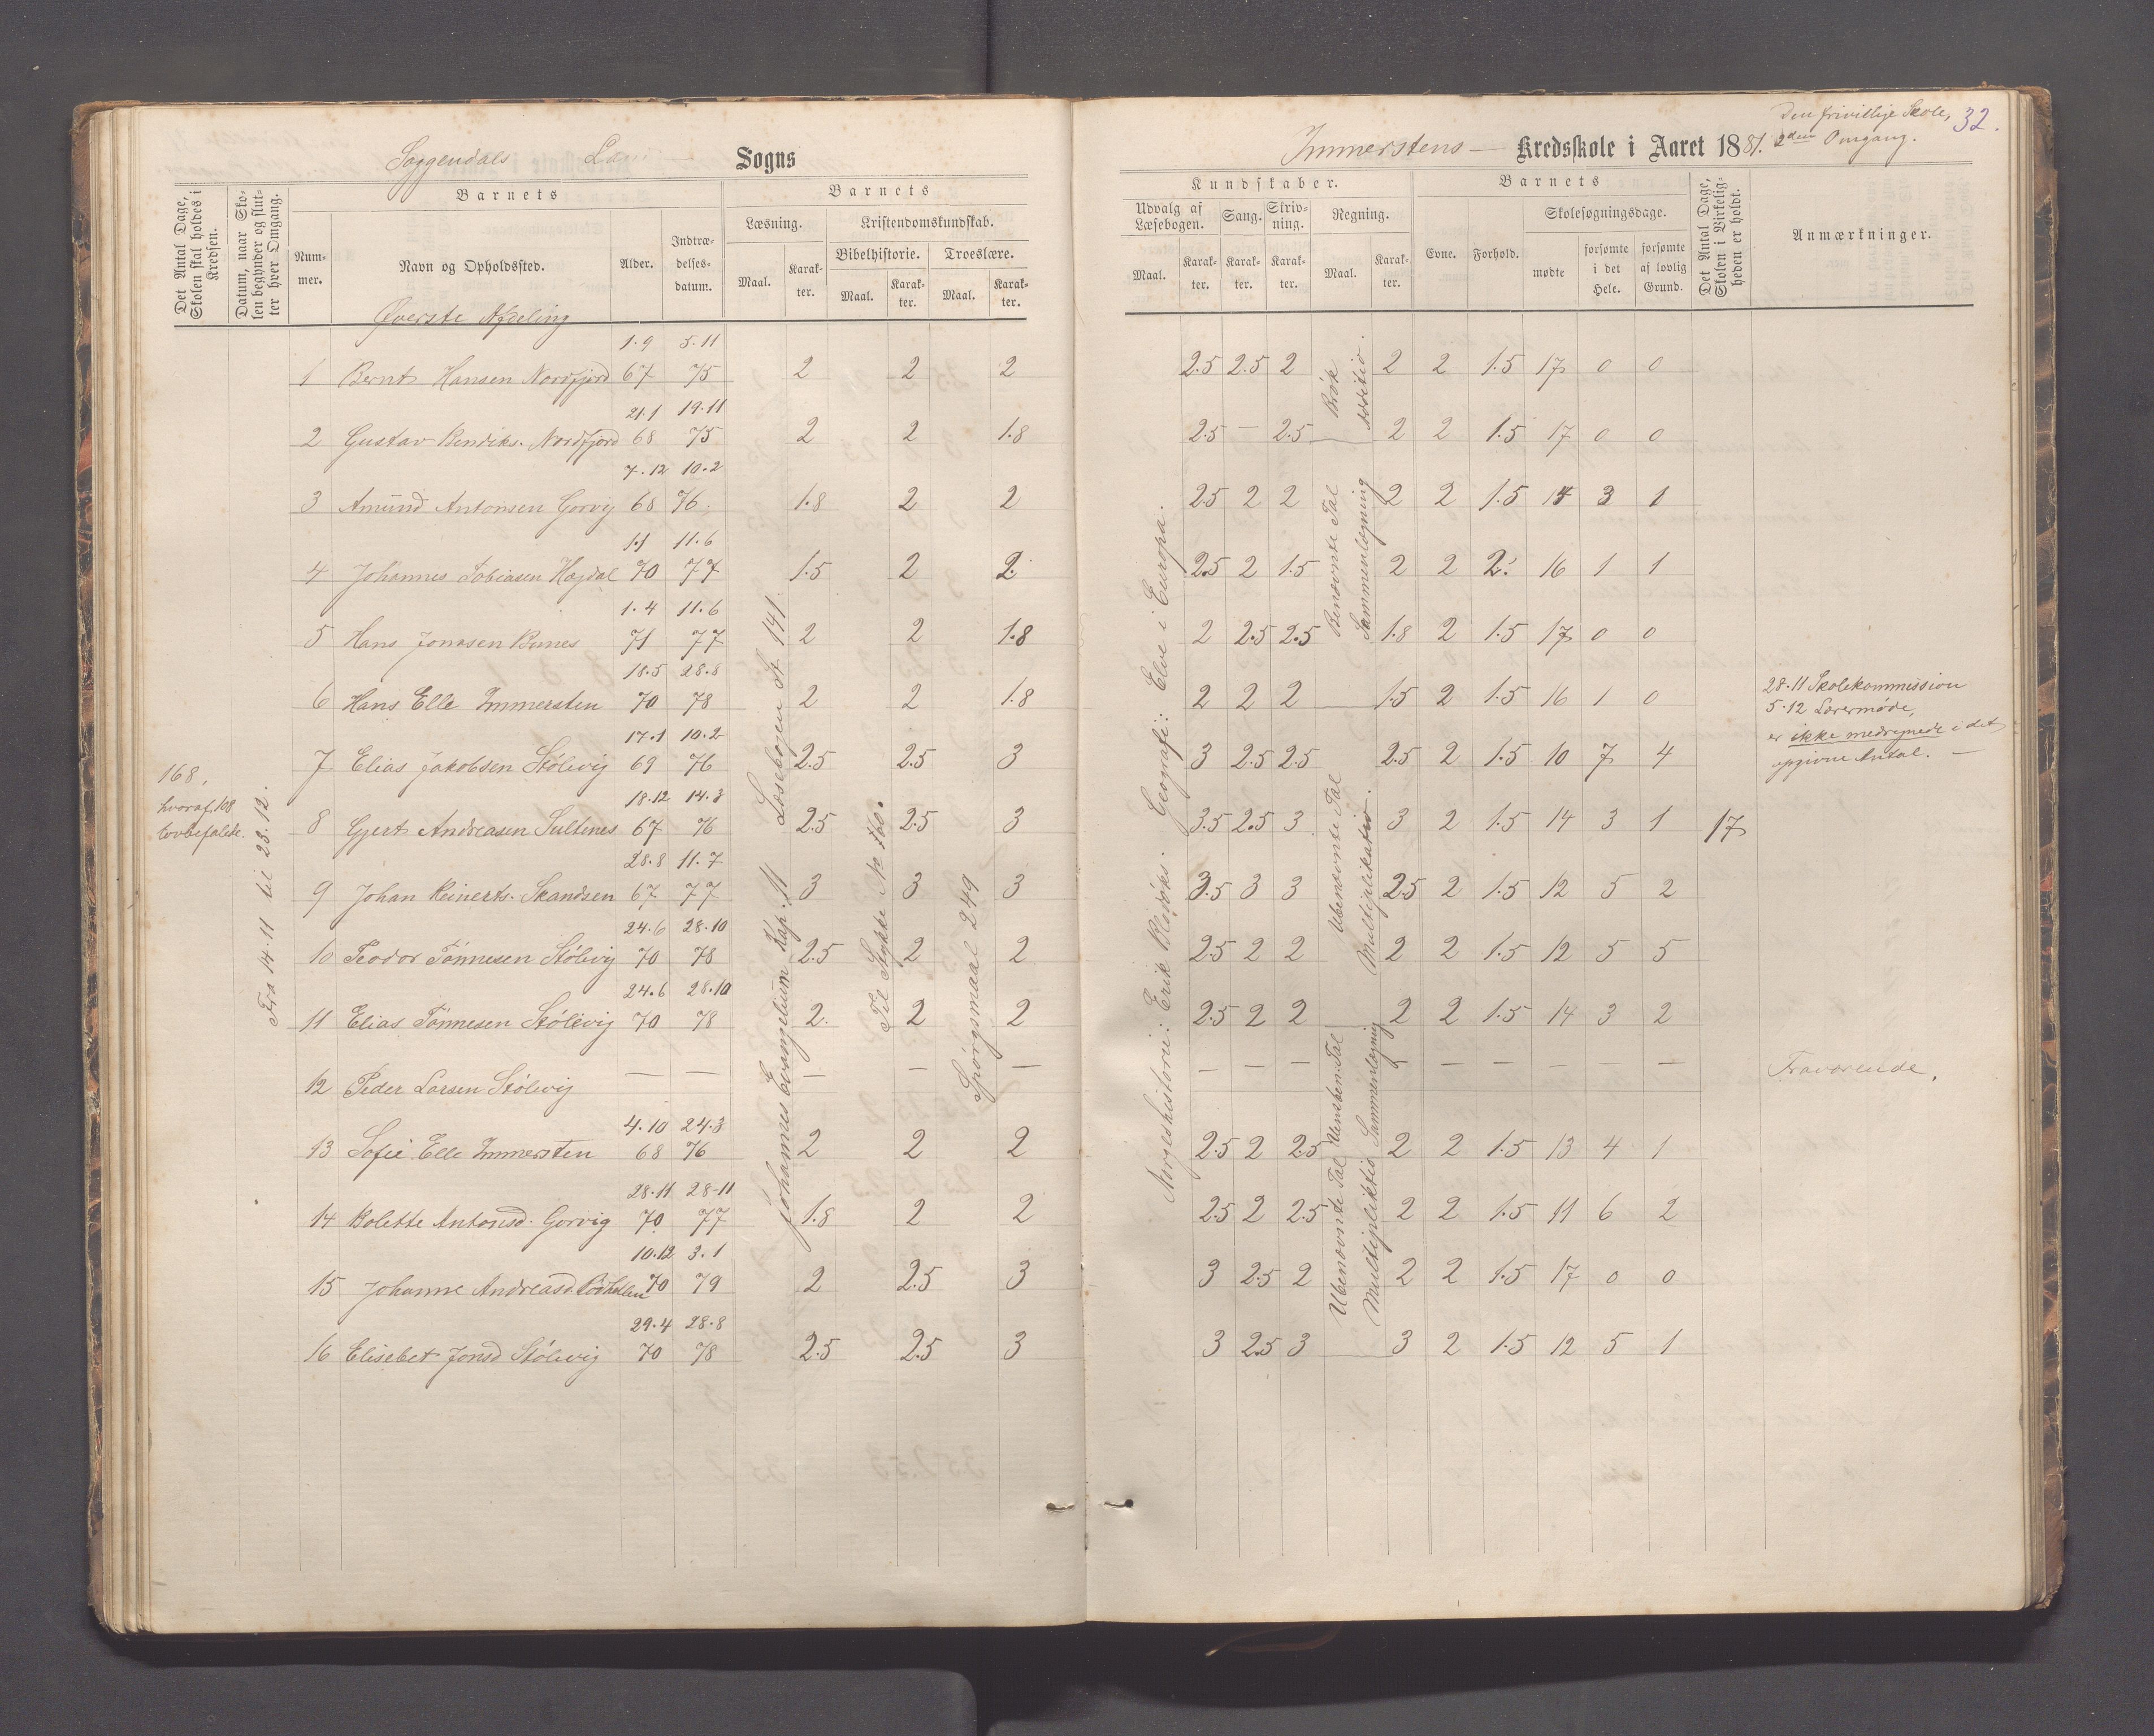 Soggendals Sogns
Det Antal Dage, Skolen skal holdes i Kredsen.
Datum, naar Skolen begynder og slutter hver Omgang.
Barnets
Barnets
Nummer.
Navn og Opholdssted.
Alder.
Indtrædelsesdatum.
Læsning.
Kristendomskundskab.
Bibelhistorie. Troeslære.
Maal. Karakter. Maal. Karakter. Maal. Karakter.
Øverste Afdeling
168, hvoraf 108 lovbefalede.
Fra 14.11 til 23.12.
Johannes Evangelium Kap. 11 Læsebogen St 141.
Til Stykke No 160.
Spörgsmaal 249
1.9 5.11
1 Bernt Hansen Nordfjord 67 75 2 2 2
21.1 19.11
2 Gustav Bendiks. Nordfjord 68 75 2 2 1.8
7.12 10.2
3 Amund Antonsen Gorvig 68 76 1.8 2 2
1.1 11.6
4 Johannes Tobiasen Hogdal 70 77 1.5 2 2
1.4 11.6
5 Hans Jonasen Bunes 71 77 2 2 1.8
18.5 28.8
6 Hans Elle Immersten 70 78 2 2 1.8
17.1 10.2
7 Elias Jakobsen Stölevig 69 76 2.5 2.5 3
18.12 14.3
8 Gjert Andreasen Sultenes 67 76 2.5 2.5 3
28.8 11.7
9 Johan Reinerts. Skandsen 67 77 3 3 3
24.6 28.10
10 Teodor Tönnesen Stölevig 70 78 2.5 2 2
24.6 28.10
11 Elias Tönnesen Stölevig 70 78 2. 2 2
12 Peder Larsen Stölevig — — — — —
4.10 24.3
13 Sofie Elle Immersten 68 76 2 2 2
28.11 28-11
14 Bolette Antonsd. Gorvig 70 77 1.8 2 2
10.12 3.1
15 Johanne Andreasd. 70 79 2 2.5 3
29.4 28.8
16 Elisebet Jonsd Stölevig 70 78 2.5 2.5 3
Den frivillige Skole, 32.
Immerstens — Kredsskole i Aaret 1881. 2den Omgang.
Kundskaber.
Barnets
Udvalg af Læsebogen. Sang. Skrivning. Regning.
Evne. Forhold. Skolesøgningsdage.
Det Antal Dage, Skolen i Virkeligheden er holdt.
Anmærkninger.
Maal. Karakter. Karakter. Karakter. Maal. Karakter.
mødte forsømte i det Hele. forsømte af lovlig Grund.
Norgeshistorie: Erik Blodöks. Geografi: Elve i Europa.
Brök Addition.
Benævnte Tal Sammenlægning
Ubenævnte Tal Multiplikation.
Uensben. Tal Sammenlægning
Ubenævnte Tal Multiplikation
2.5 2.5 2 2 2 1.5 17 0 0
2.5 — 2.5 2 2 1.5 17 0 0
2.5 2 2 2 2 1.5 14 3 1
2.5 2 1.5 2 2 2. 16 1 1
2 2.5 2.5 1.8 2 1.5 17 0 0
2 2 2 1.5 2 1.5 16 1 0
3 2.5 2.5 2.5 2 1.5 10 7 4
3.5 2.5 3 3 2 1.5 14 3 1 17
3.5 3 3 2.5 2 1.5 12 5 2
2.5 2 2 2 2 1.5 12 5 5
2.5 2 2 2 2 1.5 14 3 2
— — — — — — — — — Fraværende.
2.5 2 2.5 2 2 1.5 13 4 1
2.5 2 2.5 2 2 1.5 11 6 2
3 2.5 2 2 2 1.5 17 0 0
3 2.5 3 3 2 1.5 12 5 1
28.11 Skolekommission
5.12 Lærermøde,
er ikke medregnede i det
opgivne Antal. —